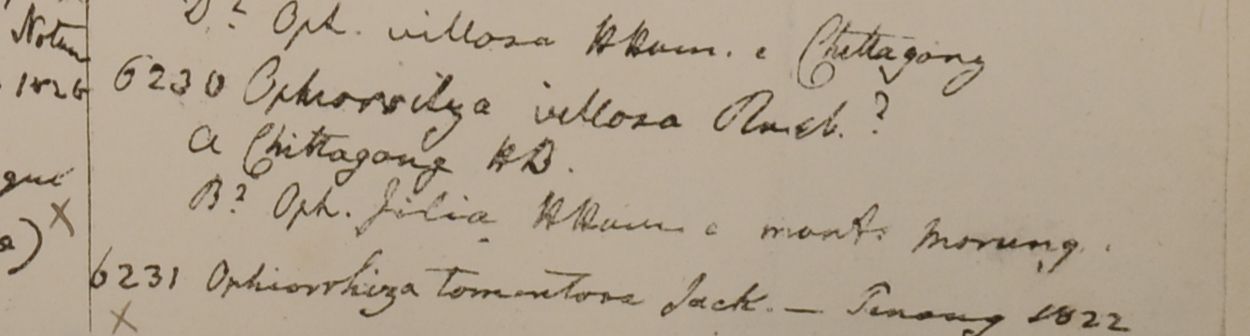 D? Oph. villosa HHam. e Chittagong
Notun
1826
6230 Ophiorrhiza villosa Roxb.?
a Chittagong HB.
B? Oph. HHam e mont: Morung.
6231 Ophiorrhiza tomentosa Jack. — Penang 1822